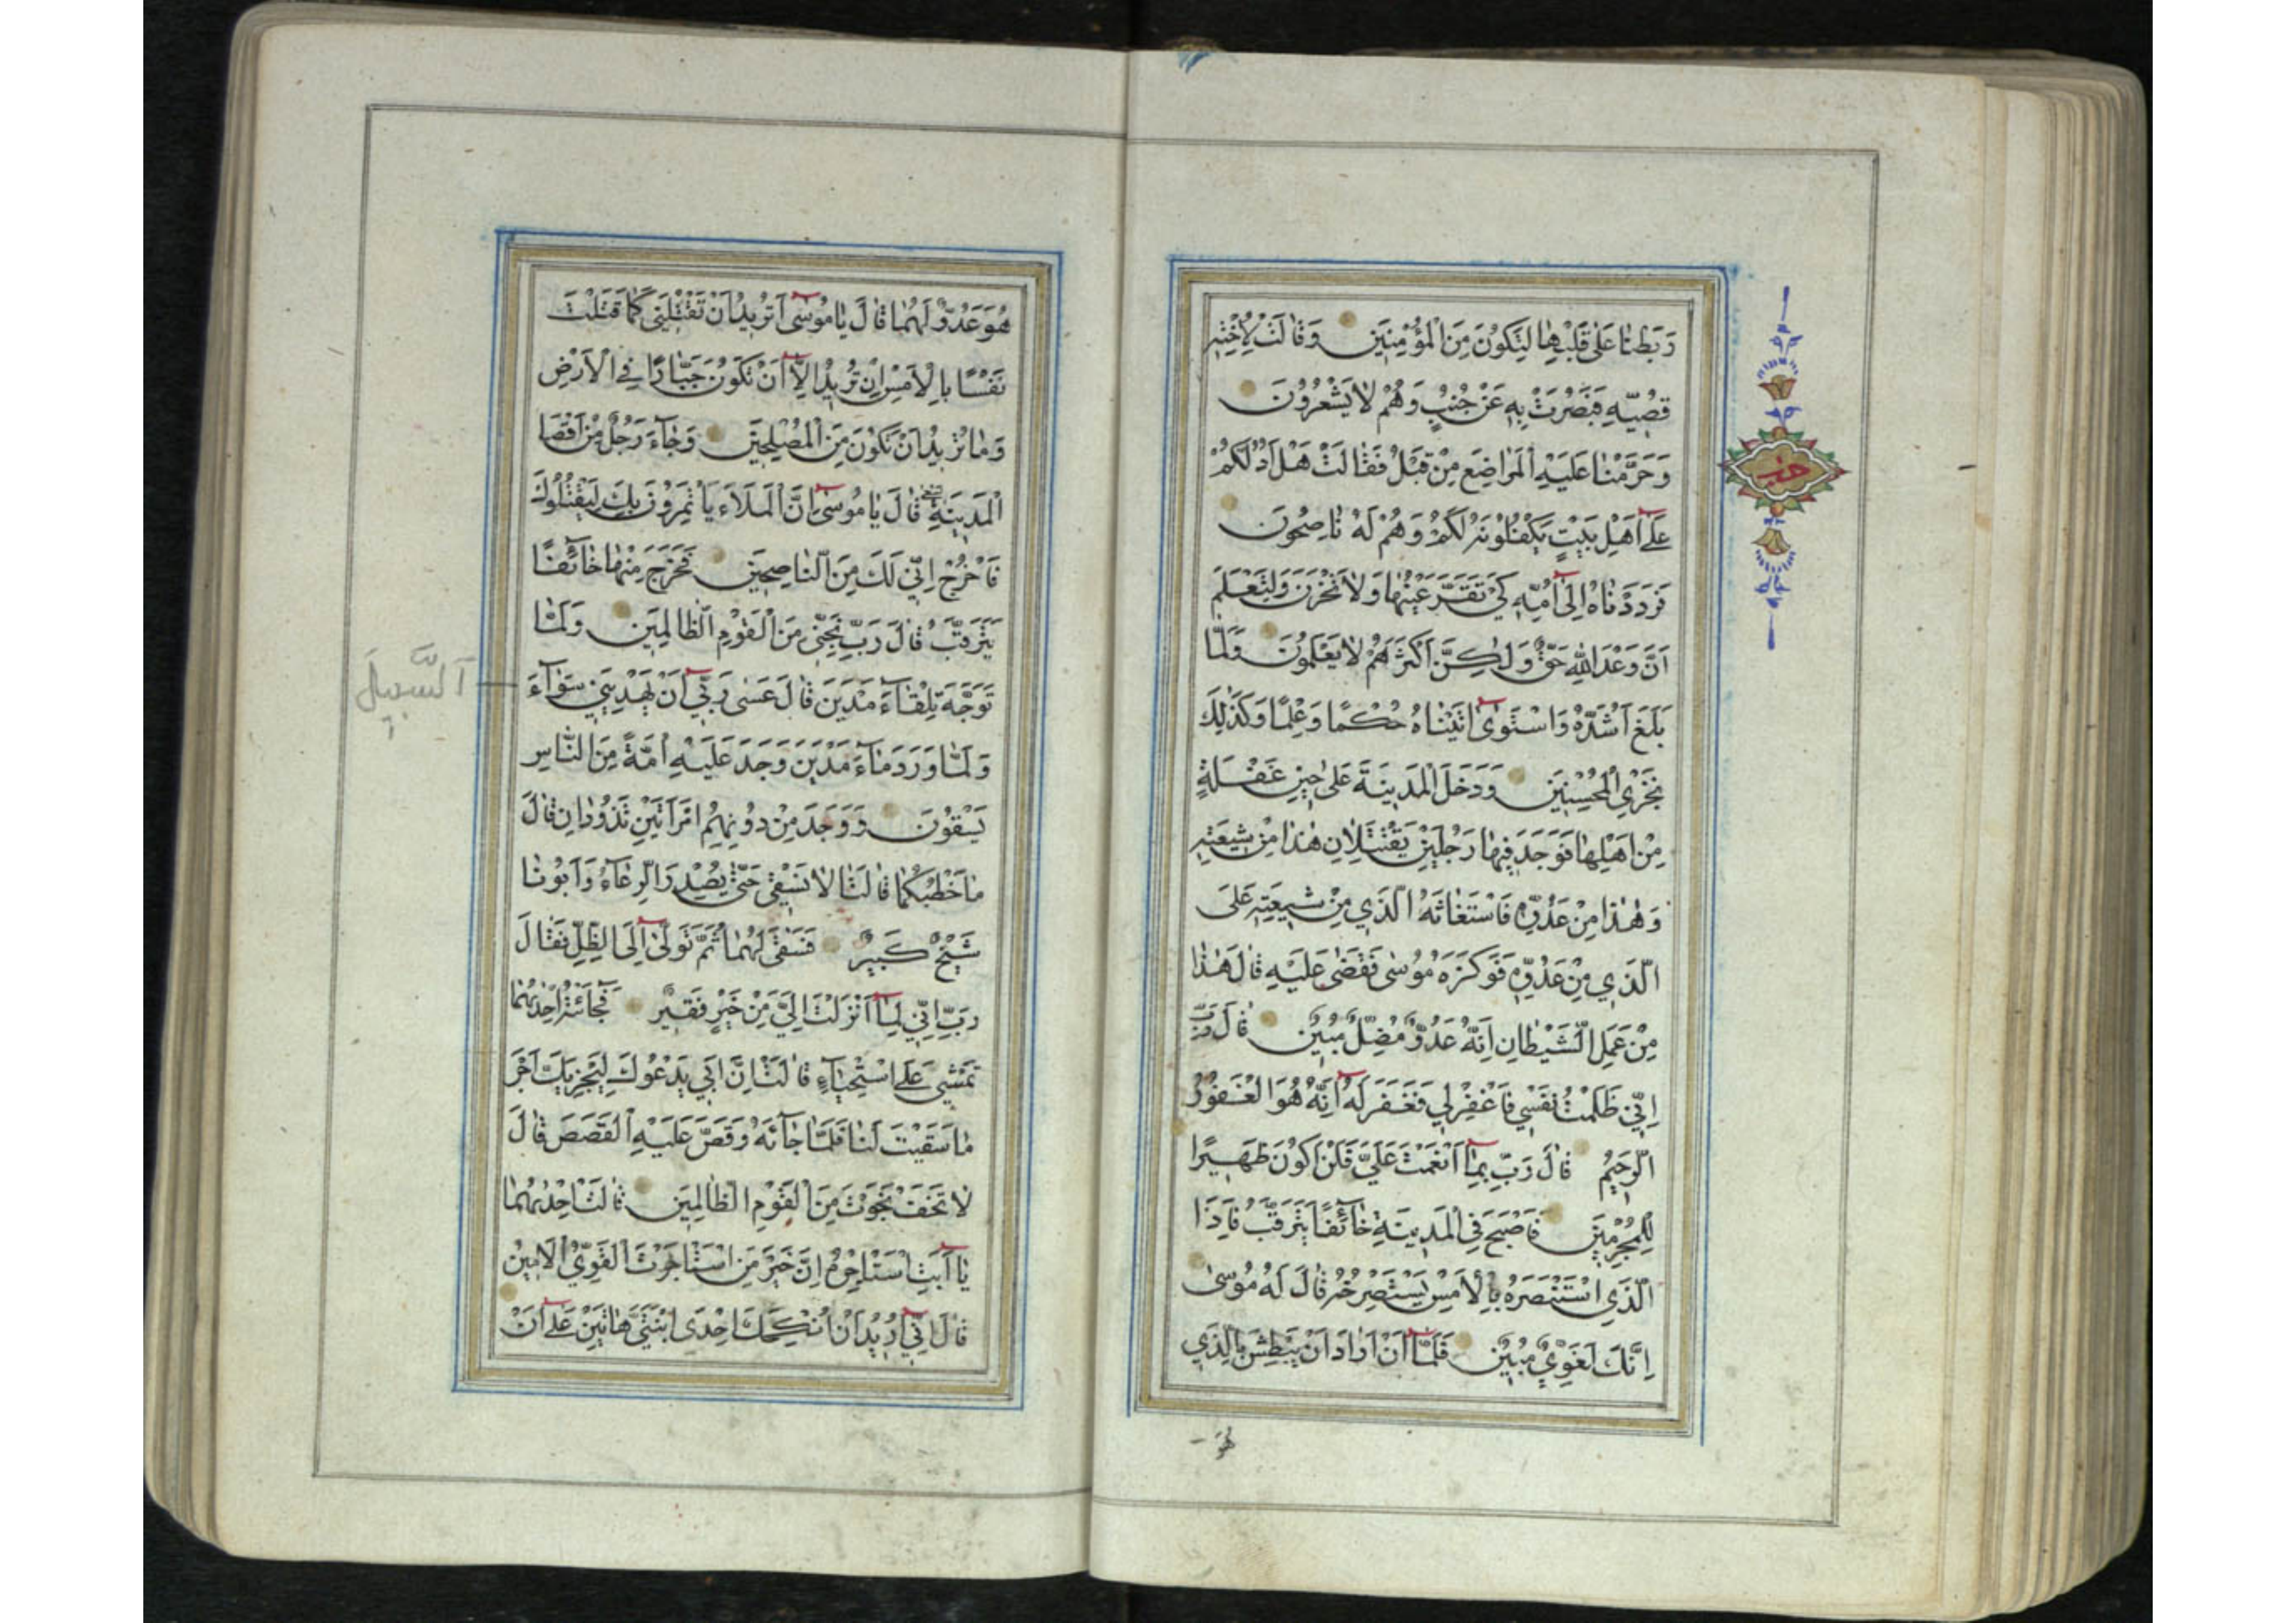 رَبَطْنَا عَلٰى قَلْبِهَا لِتَكُونَ مِنَ الْمُؤْمِنِينَ وَقَالَتْ لِاُخْتِهِ
قُصّ۪يهِ فَبَصُرَتْ بِهِ عَنْ جُنُبٍ وَهُمْ لَا يَشْعُرُونَ
وَحَرَّمْنَا عَلَيْهِ الْمَرَاضِعَ مِنْ قَبْلُ فَقَالَتْ هَلْ اَدُلُّكُمْ
عَلٰٓى اَهْلِ بَيْتٍ يَكْفُلُونَهُ لَكُمْ وَهُمْ لَهُ نَاصِحُونَ
فَرَدَدْنَاهُ اِلٰٓى اُمِّهِ كَيْ تَقَرَّ عَيْنُهَا وَلَا تَحْزَنَ وَلِتَعْلَمَ
اَنَّ وَعْدَ اللّٰهِ حَقٌّ وَلٰكِنَّ اَكْثَرَهُمْ لَا يَعْلَمُونَ وَلَمَّا
بَلَغَ اَشُدَّهُ وَاسْتَوٰٓى اٰتَيْنَاهُ حُكْمًا وَعِلْمًا وَكَذٰلِكَ
نَجْزِي الْمُحْسِنِينَ وَدَخَلَ الْمَدِينَةَ عَلٰى حِينِ غَفْلَةٍ
مِنْ اَهْلِهَا فَوَجَدَ فِيهَا رَجُلَيْنِ يَقْتَتِلَانِ هٰذَا مِنْ شِيعَتِهِ
وَهٰذَا مِنْ عَدُوِّهِ فَاسْتَغَاثَهُ الَّذِي مِنْ شِيعَتِهِ عَلَى
الَّذِي مِنْ عَدُوِّهِ فَوَكَزَهُ مُوسٰى فَقَضٰى عَلَيْهِ قَالَ هٰذَا
مِنْ عَمَلِ الشَّيْطَانِ اِنَّهُ عَدُوٌّ مُضِلٌّ مُبِينٌ قَالَ رَبِّ
اِنِّي ظَلَمْتُ نَفْسِي فَاغْفِرْ لِي فَغَفَرَ لَهُ اِنَّهُ هُوَ الْغَفُورُ
الرَّحِيمُ قَالَ رَبِّ بِمَٓا اَنْعَمْتَ عَلَيَّ فَلَنْ اَكُونَ ظَهِيرًا
لِلْمُجْرِمِينَ فَاَصْبَحَ فِي الْمَدِينَةِ خَٓائِفًا يَتَرَقَّبُ فَاِذَا
الَّذِي اسْتَنْصَرَهُ بِالْاَمْسِ يَسْتَصْرِخُهُ قَالَ لَهُ مُوسٰى
اِنَّكَ لَغَوِيٌّ مُبِينٌ فَلَمَّٓا اَنْ اَرَادَ اَنْ يَبْطِشَ بِالَّذِي
هُوَ
هُوَ عَدُوٌّ لَهُمَا قَالَ يَا مُوسٰٓى اَتُرِيدُ اَنْ تَقْتُلَنِي كَمَا قَتَلْتَ
نَفْسًا بِالْاَمْسِ اِنْ تُرِيدُ اِلَّٓا اَنْ تَكُونَ جَبَّارًا فِي الْاَرْضِ
وَمَا تُرِيدُ اَنْ تَكُونَ مِنَ الْمُصْلِحِينَ وَجَٓاءَ رَجُلٌ مِنْ اَقْصَا
الْمَدِينَةِ يَسْعٰى قَالَ يَا مُوسٰٓى اِنَّ الْمَلَاَ يَاْتَمِرُونَ بِكَ لِيَقْتُلُوكَ
فَاخْرُجْ اِنِّي لَكَ مِنَ النَّاصِحِينَ فَخَرَجَ مِنْهَا خَٓائِفًا
يَتَرَقَّبُ قَالَ رَبِّ نَجِّنِي مِنَ الْقَوْمِ الظَّالِمِينَ وَلَمَّا
تَوَجَّهَ تِلْقَٓاءَ مَدْيَنَ قَالَ عَسٰى رَبِّٓي اَنْ يَهْدِيَنِي سَوَٓاءَ
السَّبِيلَ
وَلَمَّا وَرَدَ مَٓاءَ مَدْيَنَ وَجَدَ عَلَيْهِ اُمَّةً مِنَ النَّاسِ
يَسْقُونَ وَوَجَدَ مِنْ دُونِهِمُ امْرَاَتَيْنِ تَذُودَانِ قَالَ
مَا خَطْبُكُمَا قَالَتَا لَا نَسْقِي حَتّٰى يُصْدِرَ الرِّعَٓاءُ وَاَبُونَا
شَيْخٌ كَبِيرٌ فَسَقٰى لَهُمَا ثُمَّ تَوَلّٰٓى اِلَى الظِّلِّ فَقَالَ
رَبِّ اِنِّي لِمَٓا اَنْزَلْتَ اِلَيَّ مِنْ خَيْرٍ فَقِيرٌ فَجَائَتْهُ اِحْدٰيهُمَا
تَمْشِي عَلَى اسْتِحْيَٓاءٍ قَالَتْ اِنَّ اَبِي يَدْعُوكَ لِيَجْزِيَكَ اَجْرَ
مَا سَقَيْتَ لَنَا فَلَمَّا جَٓائَهُ وَقَصَّ عَلَيْهِ الْقَصَصَ قَالَ
لَا تَخَفْ نَجَوْتَ مِنَ الْقَوْمِ الظَّالِمِينَ قَالَتْ اِحْدٰيهُمَا
يَٓا اَبَتِ اسْتَاْجِرْهُ اِنَّ خَيْرَ مَنِ اسْتَاْجَرْتَ الْقَوِيُّ الْاَمِينُ
قَالَ اِنِّٓي اُرِيدُ اَنْ اُنْكِحَكَ اِحْدَى ابْنَتَيَّ هَاتَيْنِ عَلٰٓى اَنْ